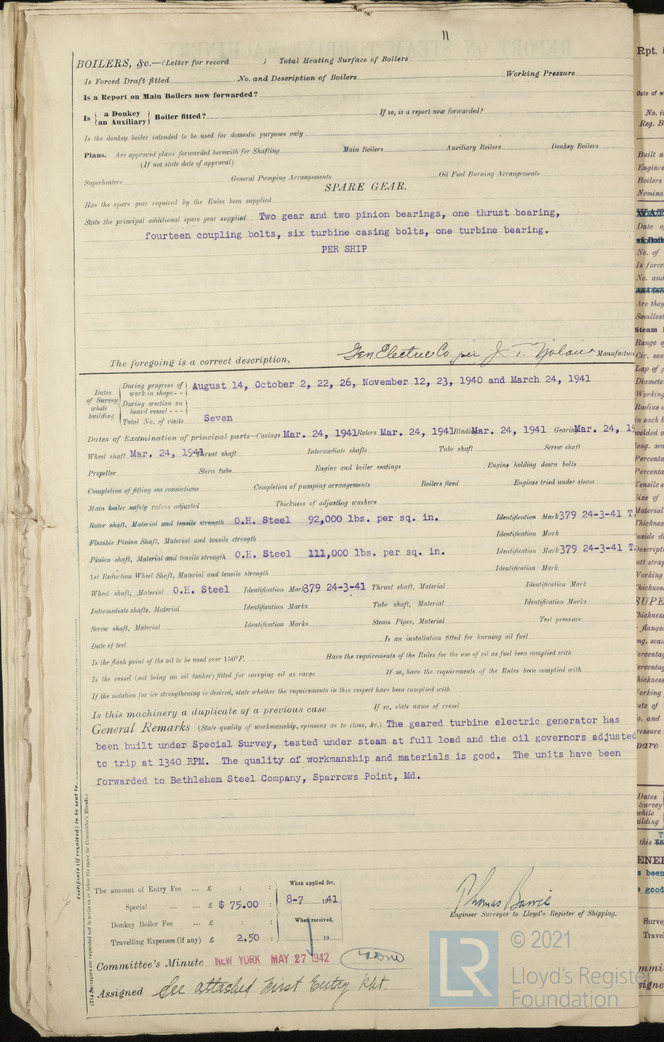 11
BOILERS, &c.—(Letter for record ) Total Heating Surface of Boilers
Is Forced Draft fitted No. and Description of Boilers Working Pressure
Is a Report on Main Boilers now forwarded?
Is { a Donkey / an Auxiliary } Boiler fitted? If so, is a report now forwarded?
Is the donkey boiler intended to be used for domestic purposes only
Plans. Are approved plans forwarded herewith for Shafting Main Boilers Auxiliary Boilers Donkey Boilers
(If not state date of approval)
Superheaters General Pumping Arrangements Oil Fuel Burning Arrangements
SPARE GEAR.
Has the spare gear required by the Rules been supplied
State the principal additional spare gear supplied Two gear and two pinion bearings, one thrust bearing,
fourteen coupling bolts, six turbine casing bolts, one turbine bearing.
PER SHIP
The foregoing is a correct description, Gen Electric Co. per J. T. Manufactur
Dates of Survey while building
During progress of work in shops - - August 14, October 2, 22, 26, November 12, 23, 1940 and March 24, 1941
During erection on board vessel - - -
Total No. of visits Seven
Dates of Examination of principal parts—Casings Mar. 24, 1941 Rotors Mar. 24, 1941 Blading Mar. 24, 1941 Gearing Mar. 24, 19
Wheel shaft Mar. 24, 1941 Thrust shaft Intermediate shafts Tube shaft Screw shaft
Propeller Stern tube Engine and boiler seatings Engine holding down bolts
Completion of fitting sea connections Completion of pumping arrangements Boilers fixed Engines tried under steam
Main boiler safety valves adjusted Thickness of adjusting washers
Rotor shaft, Material and tensile strength O.H. Steel 92,000 lbs. per sq. in. Identification Mark 379 24-3-41 T.
Flexible Pinion Shaft, Material and tensile strength Identification Mark
Pinion shaft, Material and tensile strength O.H. Steel 111,000 lbs. per sq. in. Identification Mark 379 24-3-41 T.
1st Reduction Wheel Shaft, Material and tensile strength Identification Mark
Wheel shaft, Material O.H. Steel Identification Mark 379 24-3-41 Thrust shaft, Material Identification Mark
Intermediate shafts, Material Identification Marks Tube shaft, Material Identification Marks
Screw shaft, Material Identification Marks Steam Pipes, Material Test pressure
Date of test Is an installation fitted for burning oil fuel
Is the flash point of the oil to be used over 150°F. Have the requirements of the Rules for the use of oil as fuel been complied with
Is the vessel (not being an oil tanker) fitted for carrying oil as cargo If so, have the requirements of the Rules been complied with
If the notation for ice strengthening is desired, state whether the requirements in this respect have been complied with
Is this machinery a duplicate of a previous case If so, state name of vessel
General Remarks (State quality of workmanship, opinions as to class, &c.) The geared turbine electric generator has
been built under Special Survey, tested under steam at full load and the oil governors adjusted
to trip at 1340 RPM. The quality of workmanship and materials is good. The units have been
forwarded to Bethlehem Steel Company, Sparrows Point, Md.
Certificate (if required) to be sent to
(The Surveyors are requested not to write on or below the space for Committee's Minute.)
The amount of Entry Fee ... £ : : When applied for,
Special ... ... £ $ 75.00 : 8-7 1941
Donkey Boiler Fee ... £ : : When received,
Travelling Expenses (if any) £ 2.50 : 19
Thomas
Engineer Surveyor to Lloyd's Register of Shipping.
Committee's Minute NEW YORK MAY 27 1942
Assigned See attached First Entry Rpt.
LR © 2021
Lloyd's Register
Foundation
Rpt.